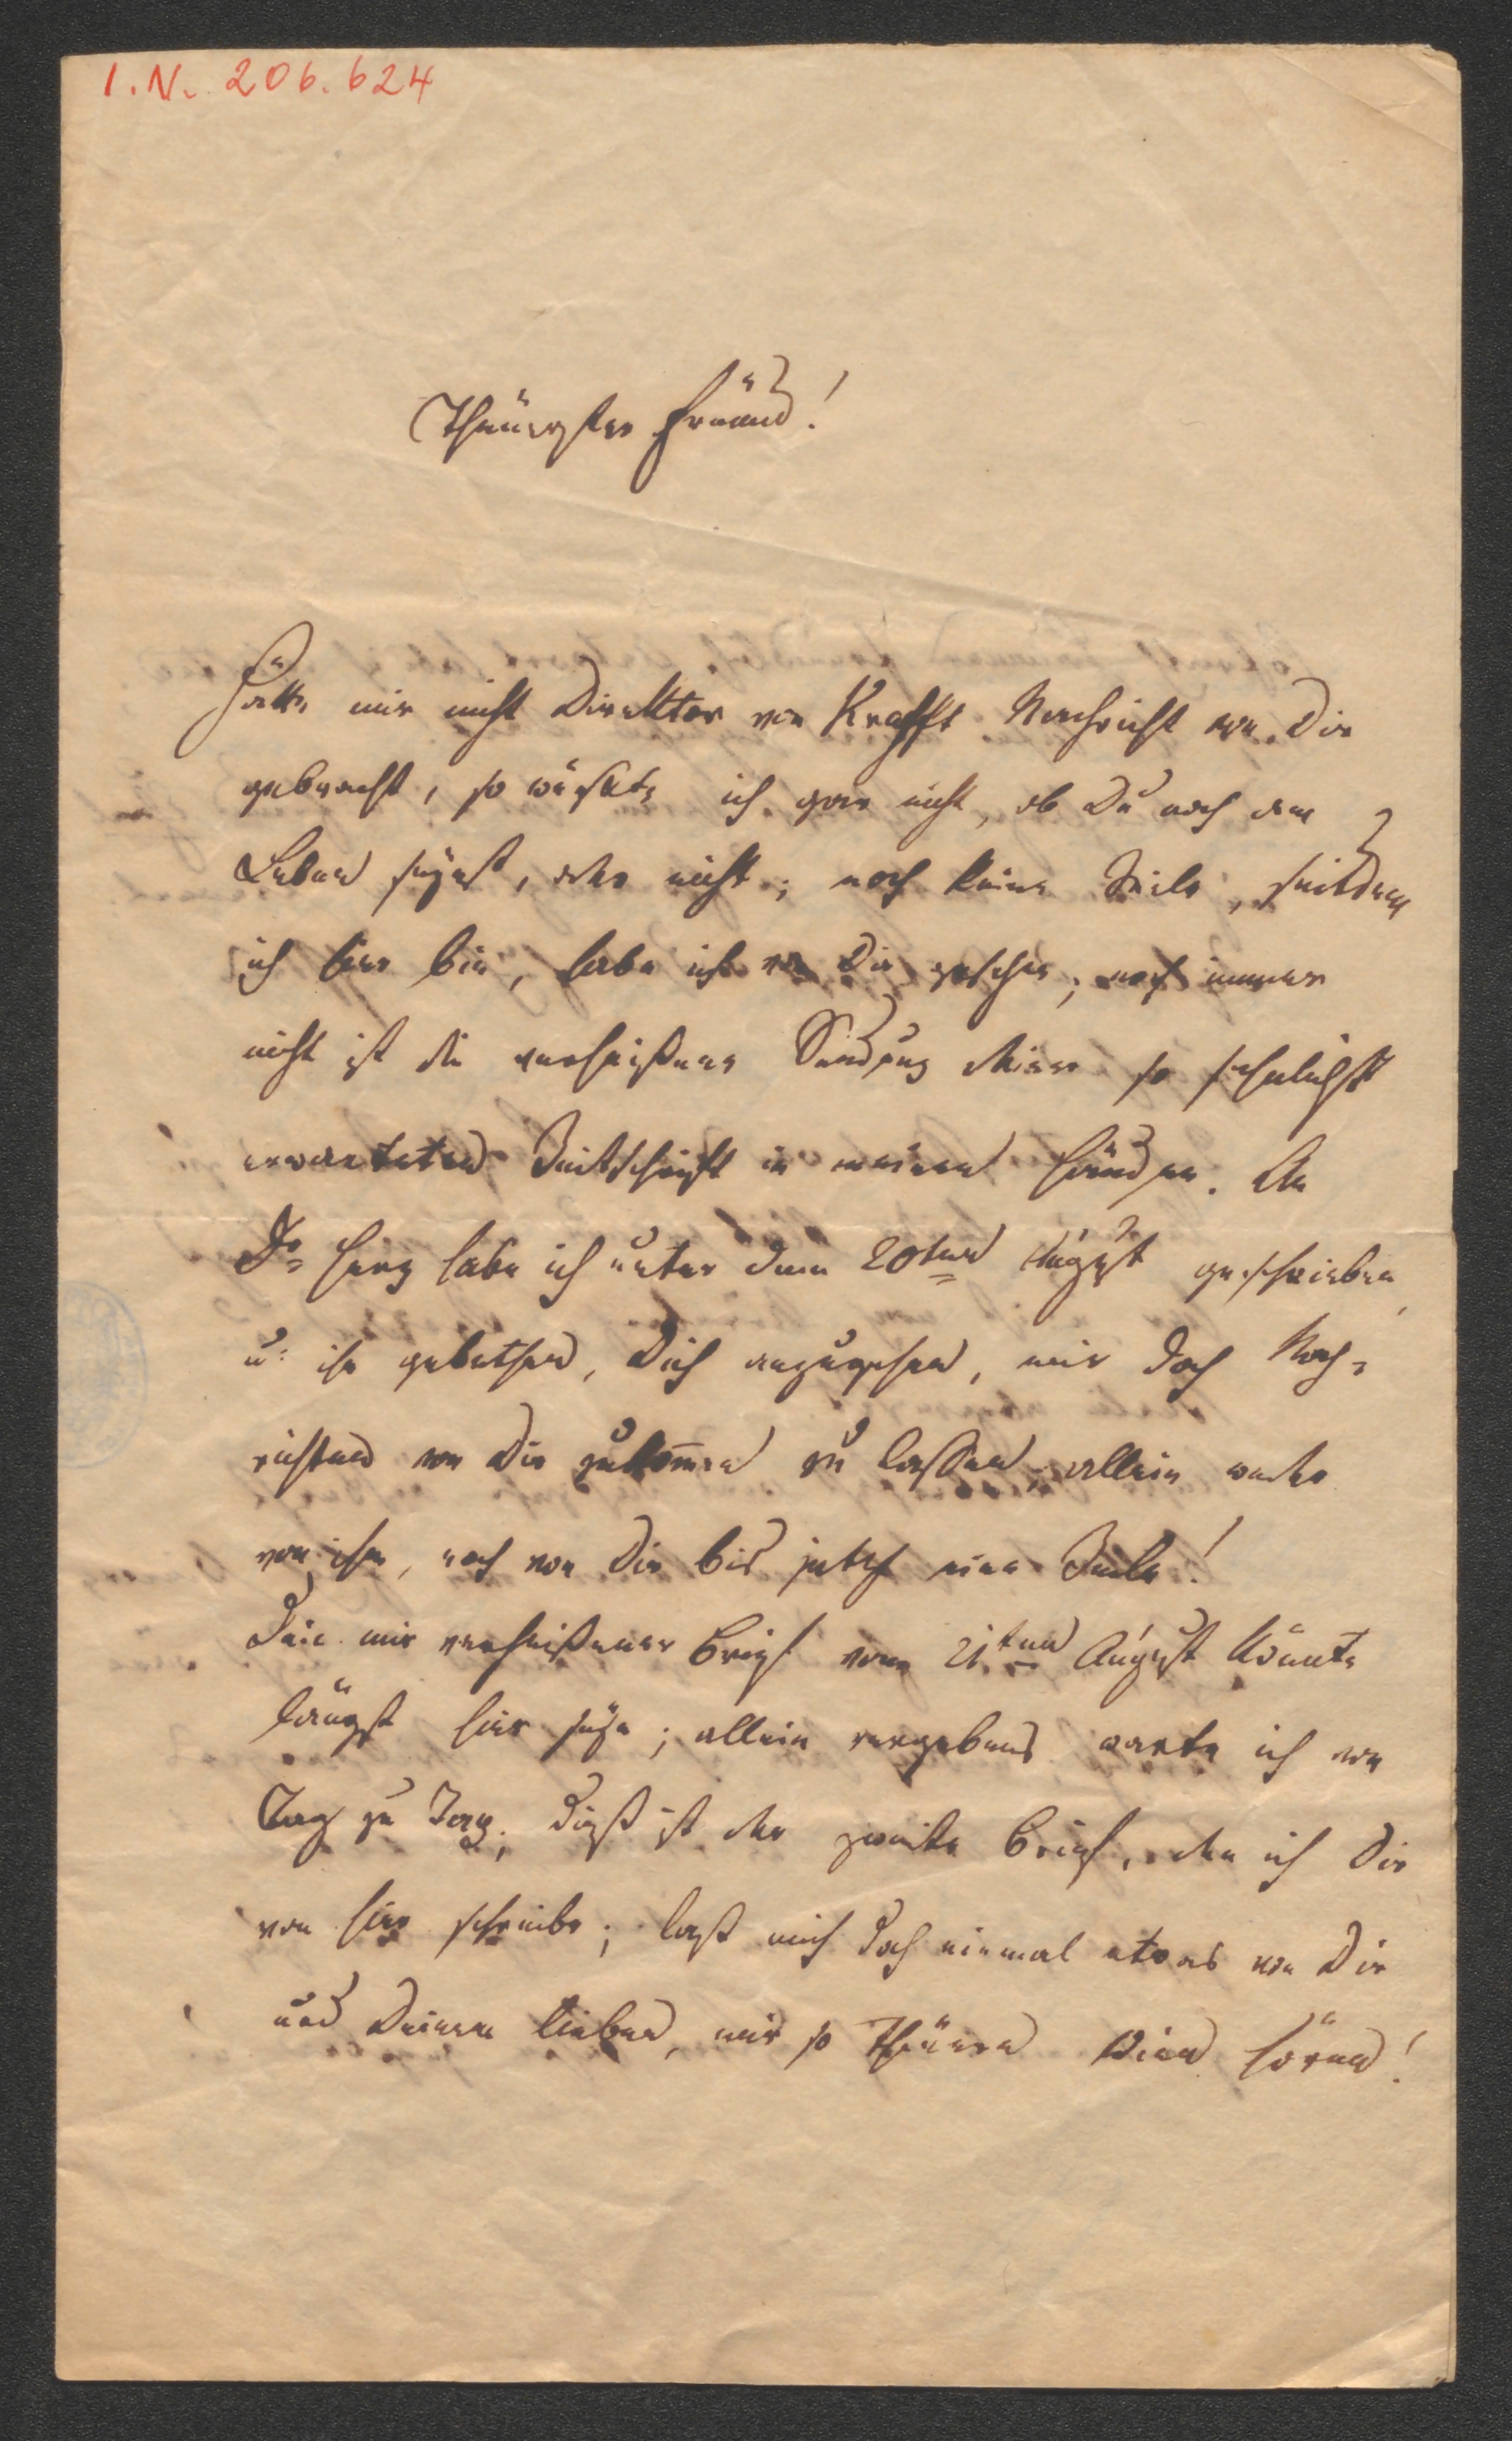 I.N. 206.624
Theuerster Freund!
Hätte mir nicht Direktor von Krafft Nachricht von Dir
gebracht, so wüßte ich gar nicht, ob Du noch am
Leben seyest, oder nicht; noch keine Zeile, seitdem
ich hier bin, habe ich von Dir gesehen; noch immer
nicht ist die verheißene Sendung Deiner so sehnlichst
erwarteten Zeitschrift in meinen Händen. An
Dr. habe ich unter dem 20ten August geschrieben
u: ihn gebethen, Dich anzugehen, mir doch Nach-
richten von Dir zukom̅en zu lassen, allein weder
von ihm, noch von Dir bis jetzt eine Zeile!
Dein mir verheißener Brief vom 21ten August könnte
längst hier seyn; allein vergebens warte ich von
Tag zu Tag. Dieß ist der zweite Brief, den ich Dir
von hier schreibe; laß mich doch einmal etwas von Dir
und Deinem lieben, mir so theuern Wien hören!